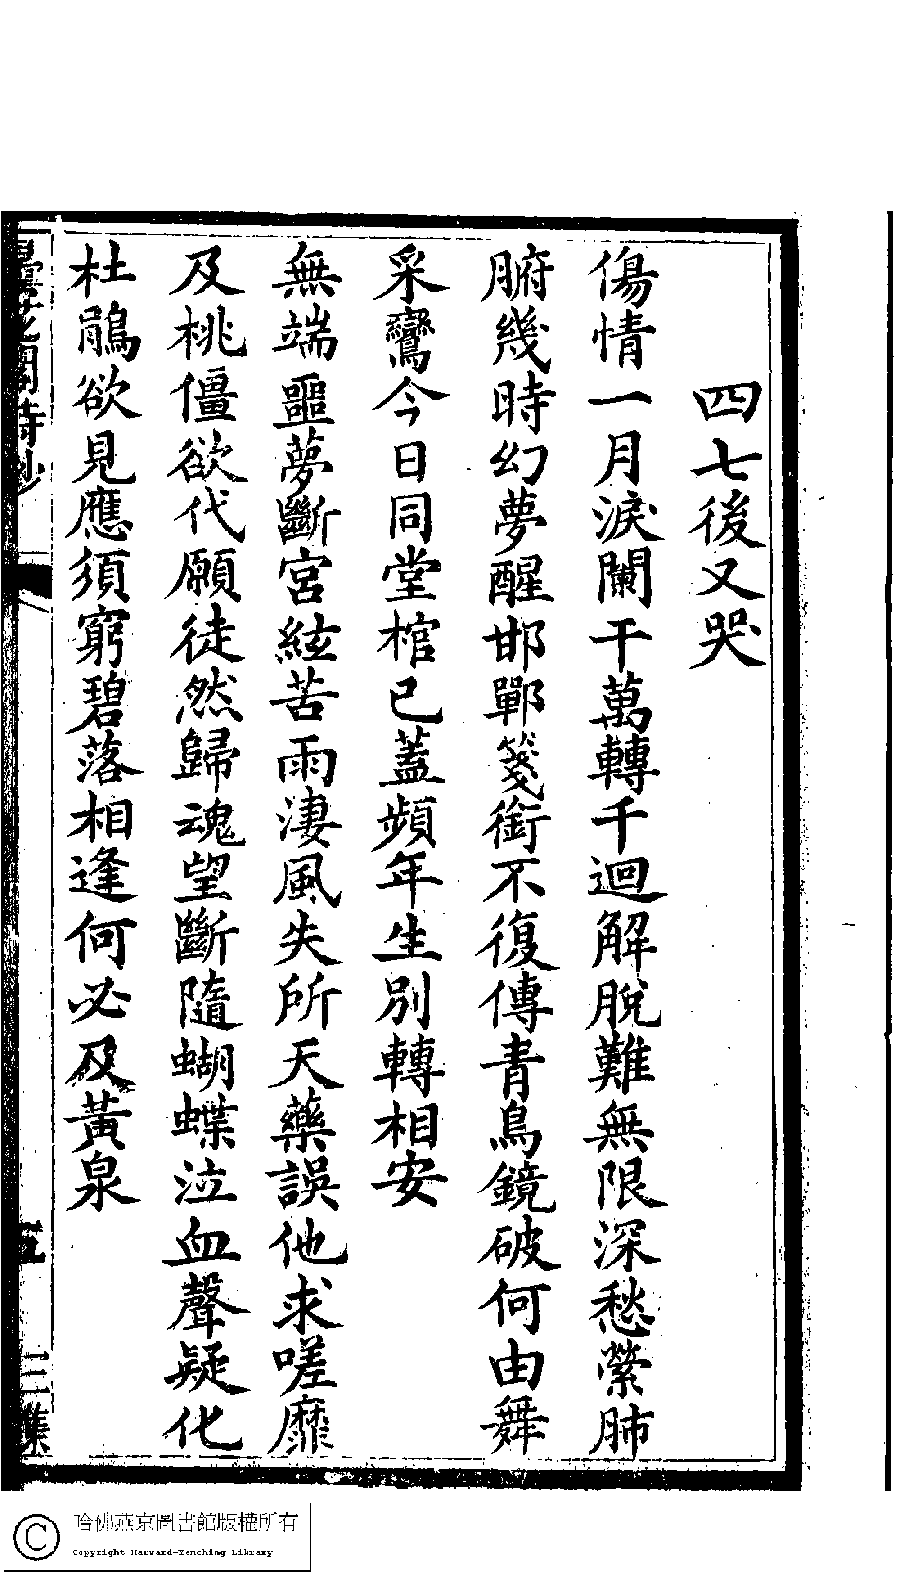 四七後又哭
傷情一月淚闌干萬轉千迴解脫難無限深愁縈肺
腑幾時幻夢醒邯鄲箋銜不復傳青鳥鏡破何由舞
采鸞今日同堂棺已蓋頻年生別轉相安
無端噩夢斷宮絃苦雨淒風失所天藥誤他求嗟靡
及桃僵欲代願徒然歸魂望斷隨蝴蝶泣血聲疑化
杜鵑欲見應須窮碧落相逢何必及黃泉
曇花閣詩鈔
五
三集
哈佛燕京圖書館版權所有
Copyright Harvard-Yenching Library